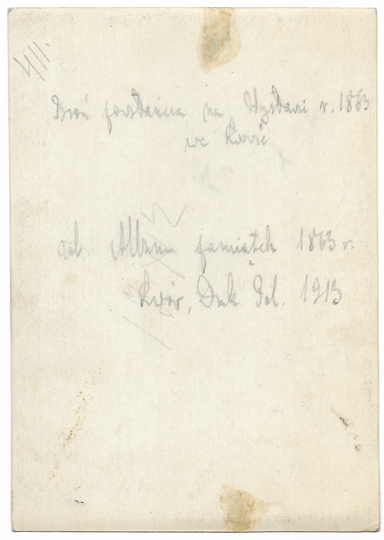 411.
Broń powstańcza na Wystawie r. 1863
we Lwowie
Album pamiątek 1863 r.
Lwów, Druk 1913